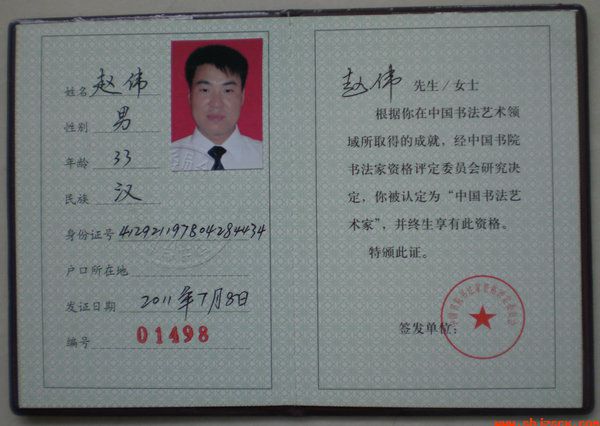 姓名 赵伟
性别 男
年龄 33
民族 汉
身份证号 412921197804284434
户口所在地
发证日期 2011年7月8日
编号 01498
赵伟 先生/女士
根据你在中国书法艺术领
域所取得的成就，经中国书院
书法家资格评定委员会研究决
定，你被认定为“中国书法艺
术家”，并终生享有此资格。
特颁此证。
签发单位：